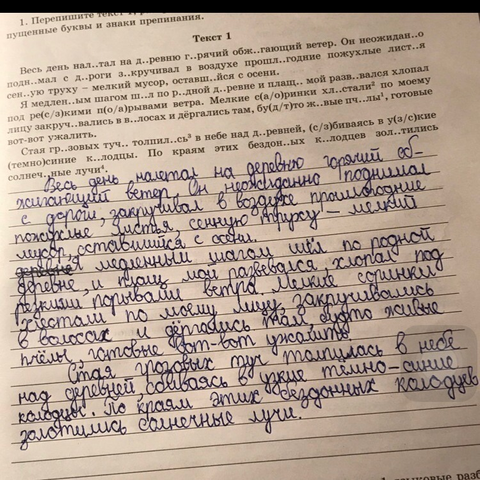 1. Перепишите текст
пущенные буквы и знаки препинания.
Текст 1
Весь день нал..тал на д..ревню г..рячий обж..гающий ветер. Он неожидан..о
подн..мал с д..роги з..кручивал в воздухе прошл..годние пожухлые лист..я
сен..ую труху – мелкий мусор, оставш..йся с осени.
Я медлен..ым шагом ш..л по р..дной д..ревне и плащ.. мой разв..вался хлопал
под ре(с/з)кими п(о/а)рывами ветра. Мелкие с(а/о)ринки хл..стали² по моему
лицу закруч..вались в в..лосах и дёргались там, бу(д/т)то ж..вые пч..лы¹, готовые
вот-вот ужалить.
Стая гр..зовых туч.. толпил..сь³ в небе над д..ревней, (с/з)биваясь в у(з/с)кие
(темно)синие к..лодцы. По краям этих бездон..ых к..лодцев зол..тились
солнеч..ные лучи⁴.
Весь день налетал на деревню горячий об-
жигающий ветер. Он неожиданно поднимал
с дороги, закручивал в воздухе прошлогодние
пожухлые листья, сенную труху – мелкий
мусор, оставшийся с осени.
Я медленным шагом шёл по родной
деревне, и плащ мой развевался, хлопал под
резкими порывами ветра. Мелкие соринки
хлестали по моему лицу, закручивались
в волосах и дёргались там, будто живые
пчёлы, готовые вот-вот ужалить.
Стая грозовых туч толпилась в небе
над деревней, сбиваясь в узкие тёмно-синие
колодцы. По краям этих бездонных колодцев
золотились солнечные лучи.